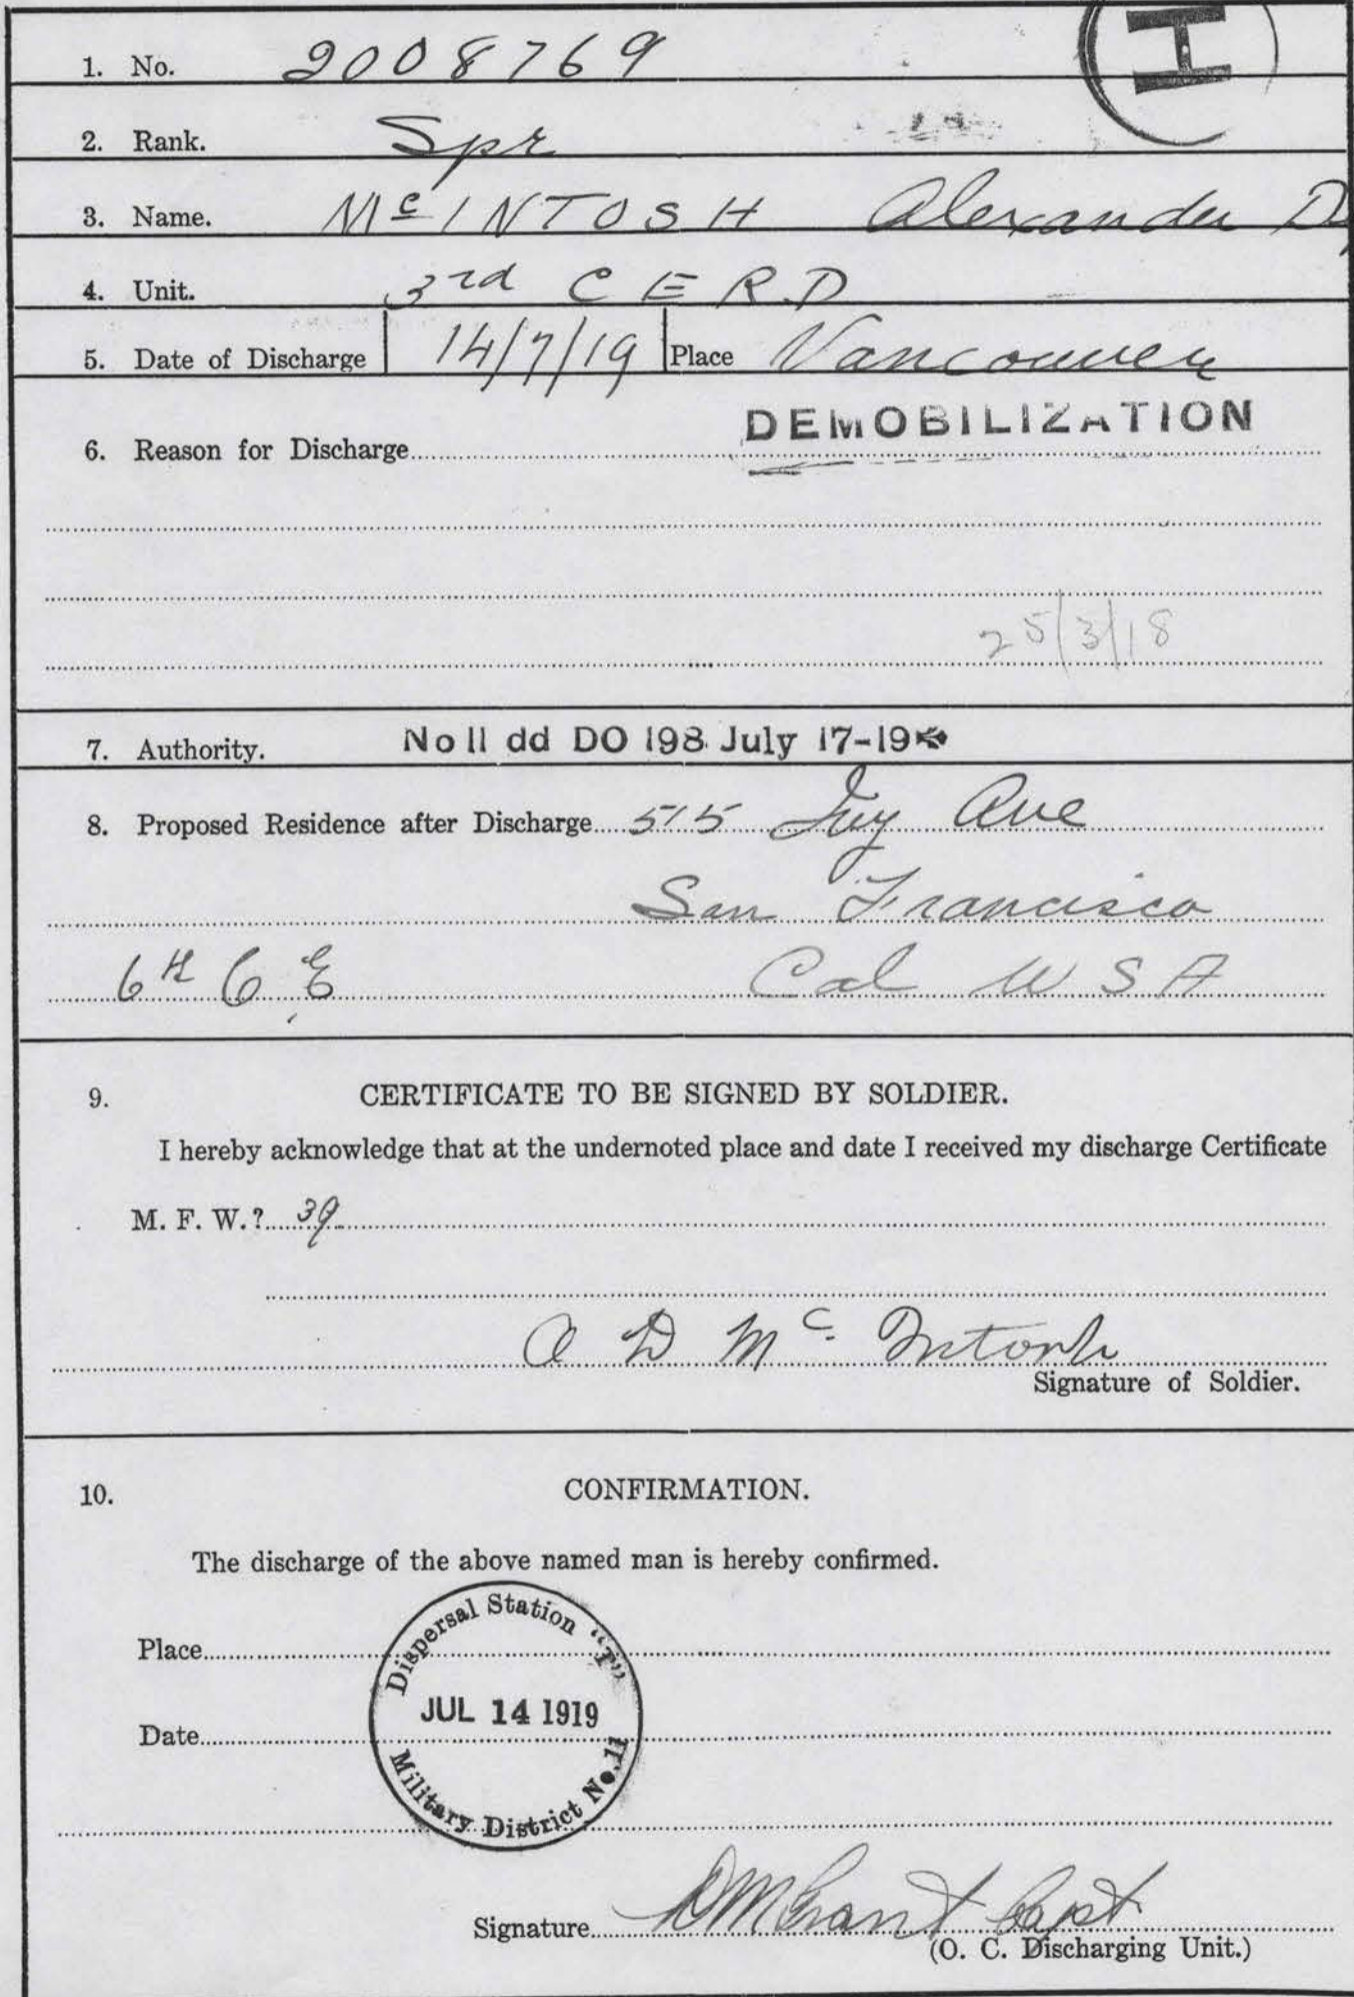 H
1. No. 2008769
2. Rank. Spr
3. Name. McINTOSH Alexander D
4. Unit. 3rd C E R D
5. Date of Discharge 14/7/19 Place Vancouver
6. Reason for Discharge DEMOBILIZATION
25/3/18
7. Authority. No 11 dd DO 198 July 17-19
8. Proposed Residence after Discharge 515 Ivy Ave
San Francisco
6th C E Cal U S A
9. CERTIFICATE TO BE SIGNED BY SOLDIER.
I hereby acknowledge that at the undernoted place and date I received my discharge Certificate
M. F. W.? 39
A D Mc Intosh
Signature of Soldier.
10. CONFIRMATION.
The discharge of the above named man is hereby confirmed.
Dispersal Station
Place
JUL 14 1919
Date
Military District No. 11
Signature DM Grant Capt
(O. C. Discharging Unit.)